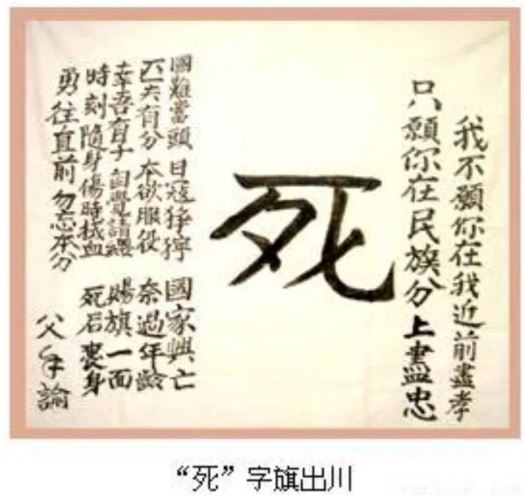 我不願你在我近前盡孝
只願你在民族分上盡忠
死
國難當頭 日寇猙獰 國家興亡
匹夫有分 本欲服役 奈過年齡
幸吾有子 自覺請纓 賜旗一面
時刻隨身 傷時拭血 死后裹身
勇往直前 勿忘本分
父手諭
“死”字旗出川